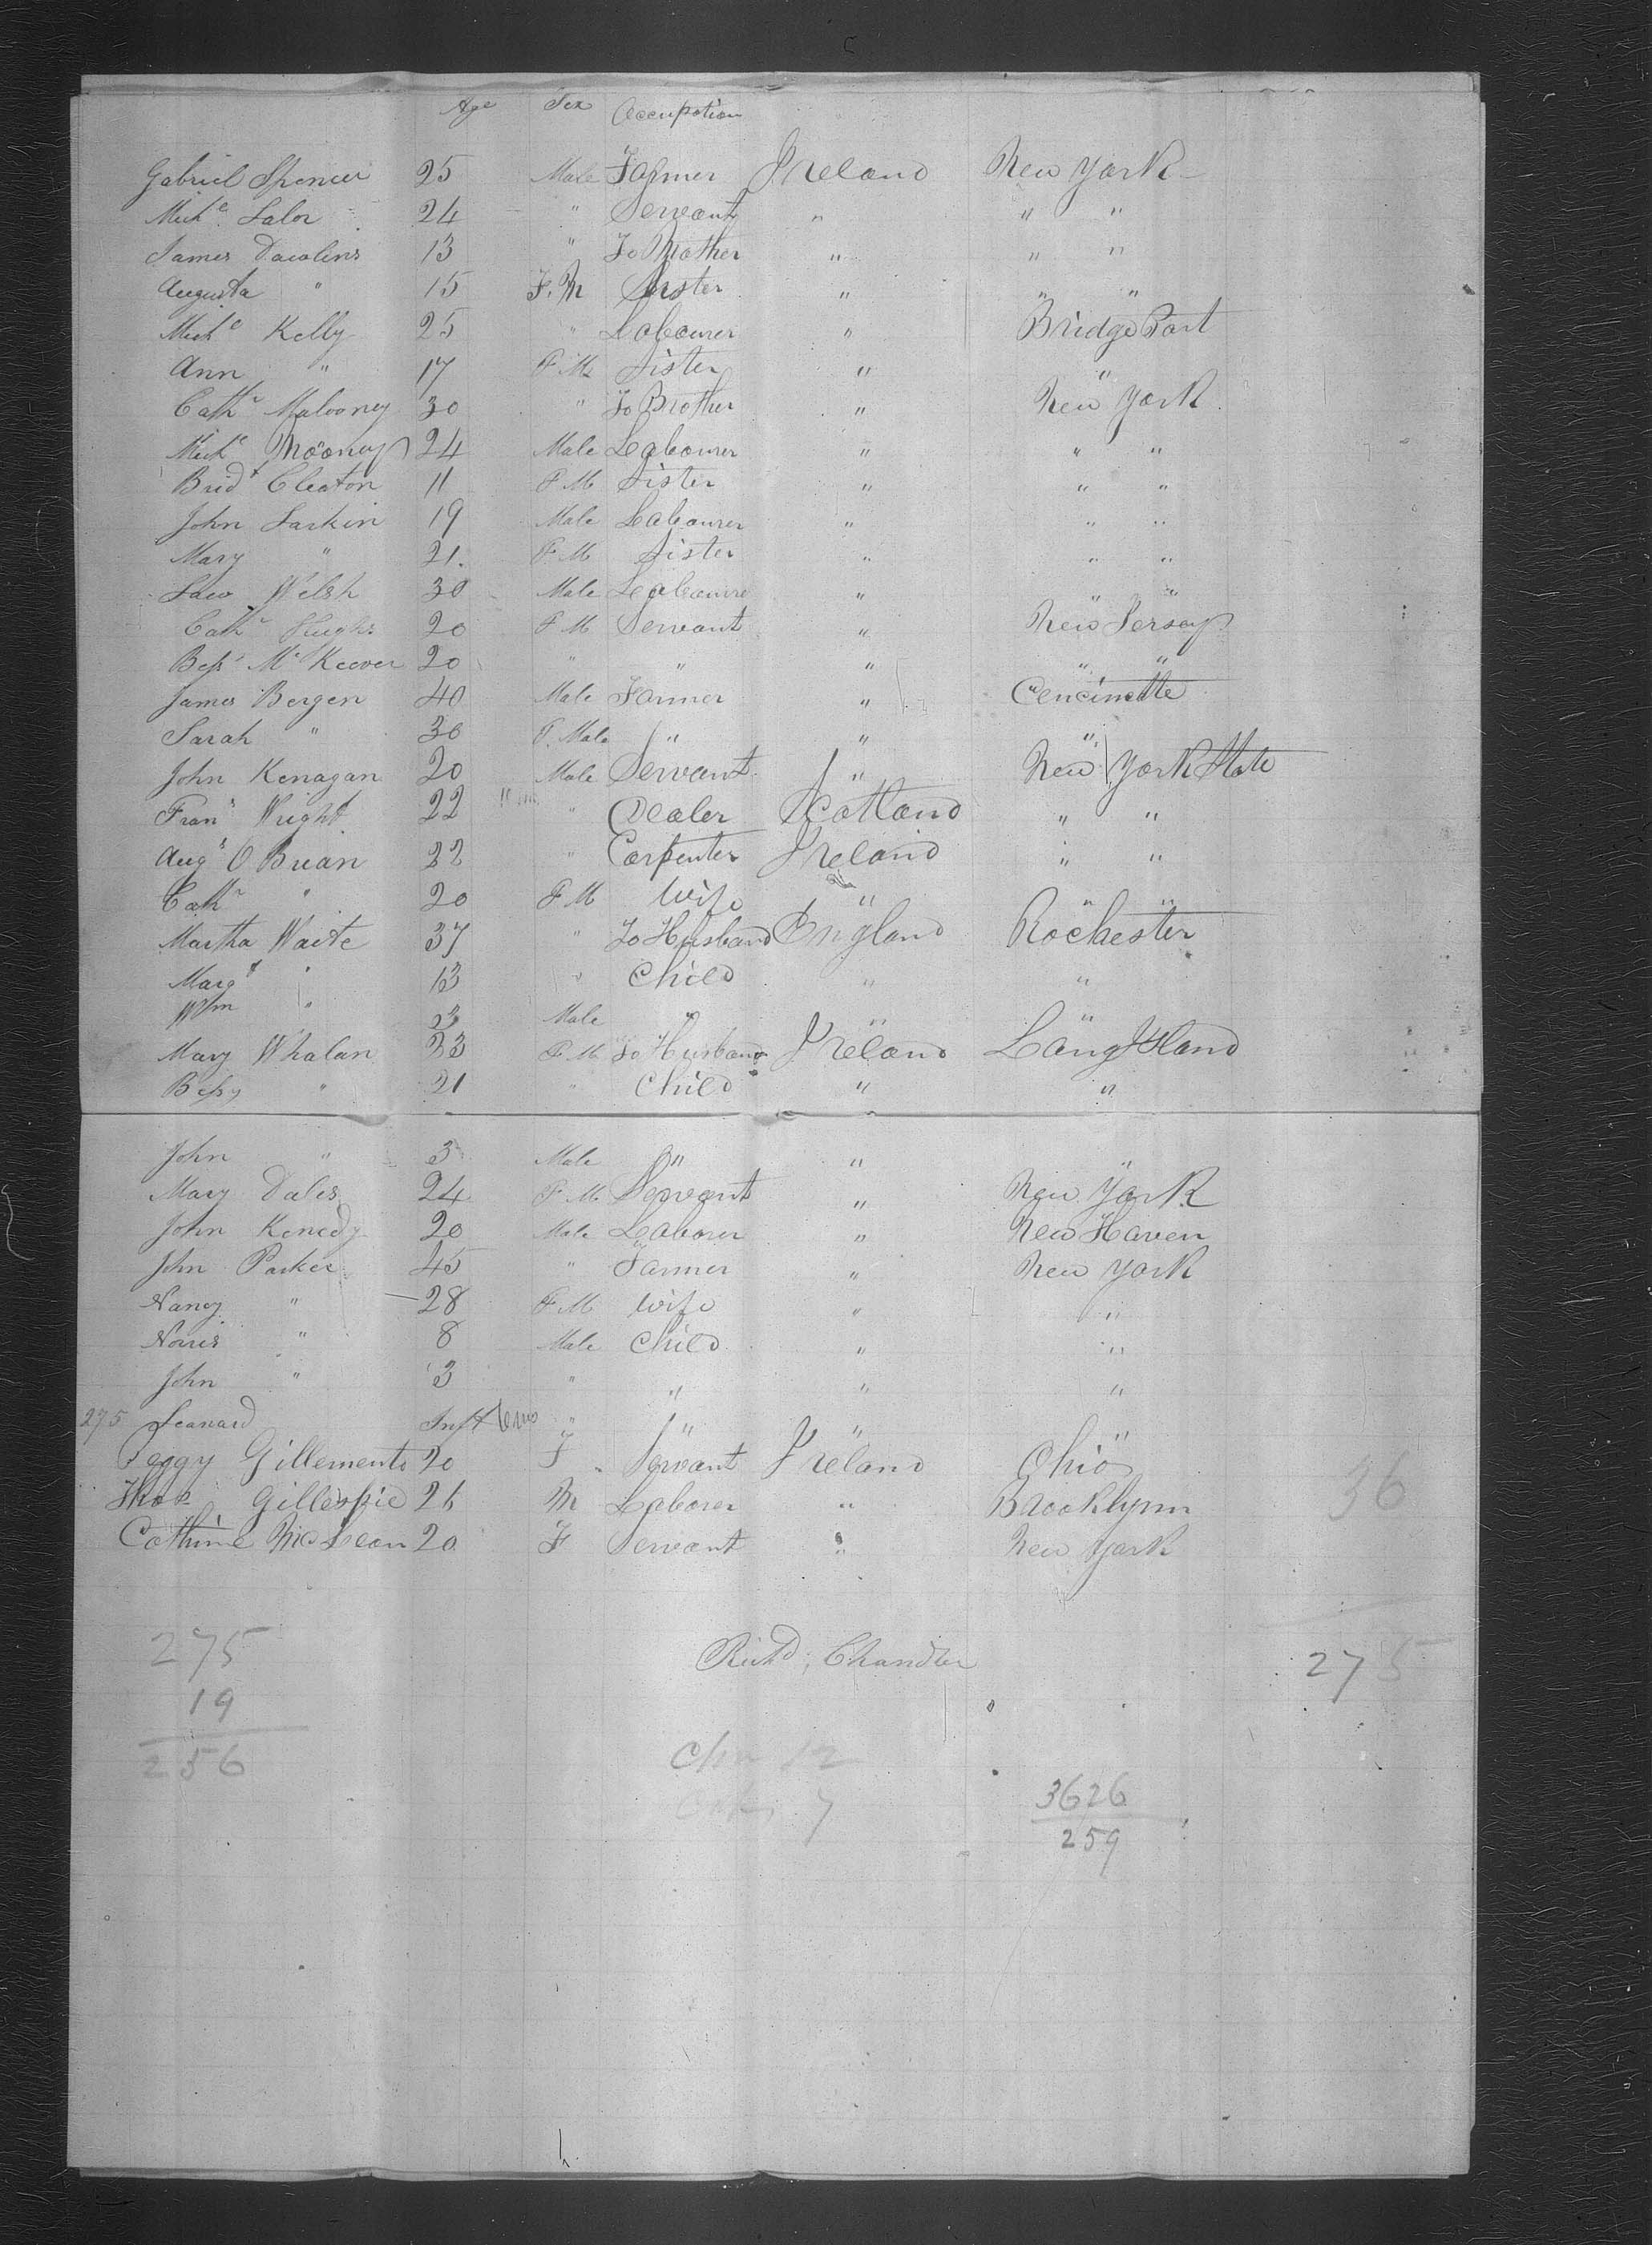 Age Sex Occupation
Gabriel Spencer 25 Male Farmer Ireland New York
Mich.l Lalor 24 " Servant " " "
James Dawlins 13 " To Mother " " "
Augusta " 15 F.M Sister " " "
Mich.l Kelly 25 " Labourer " Bridge Port
Ann " 17 F M Sister " "
Cath.n Malooney 30 " To Brother " New York
Mich.l Mooney 24 Male Labourer " " "
Brid.t Cleaton 11 F M Sister " " "
John Larkin 19 Male Labourer " " "
Mary " 21 F M Sister " " "
Law Welsh 30 Male Labourer " " "
Cath.n Hughs 20 F M Servant " New Jersey
Bess McKeever 20 " " " " "
James Bergen 40 Male Farmer " Cencinatte
Sarah " 30 F. Male " " "
John Kenagan 20 Male Servant " New York State
Fran.s Wright 22 " Dealer Scotland " "
Aug.s O Brian 22 " Carpenter Ireland " "
Cath.n " 20 F M Wife " " "
Martha Waite 37 " To Husband England Rochester
Marg.t " 13 " Child " "
Wm " 3 Male " " "
Mary Whalan 33 F M To Husband Ireland Lang Island
Bessy " 21 " Child " "
John " 3 Male " " "
Mary Dales 24 F M Servant " New York
John Kenedy 20 Male Laborer " New Haven
John Parker 45 " Farmer " New York
Nancy " 28 F M Wife " "
Norris " 8 Male Child " "
John " 3 " " " "
275 Leonard Inft 6 mo " " " "
Peggy Gillements 20 F Servant Ireland Ohio
Thos Gillespie 26 M Laborer " Brooklynn 36
Cathrine McLean 20 F Servant " New York
275 Richd. Chandler 275
19
256 Chn 12
7
3626
259